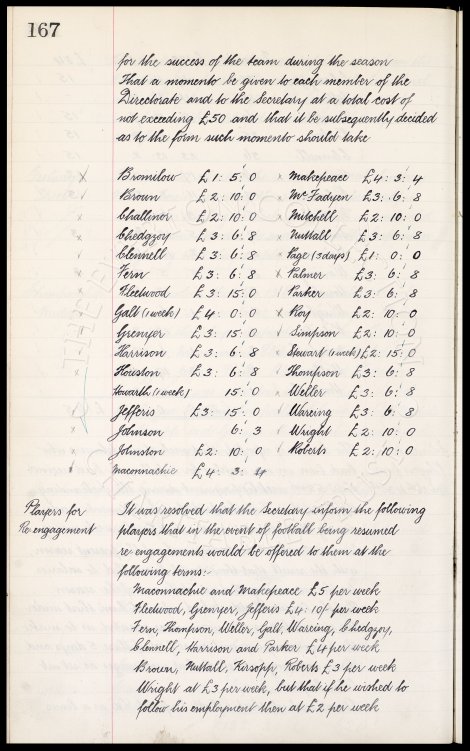 167
for the success of the team during the season
That a momento be given to each member of the
Directorate and to the Secretary at a total cost of
not exceeding £50 and that it be subsequently decided
as to the form such momento should take
x Bromilow £1: 5: 0 x Makepeace £4: 3: 4
x Brown £2: 10: 0 x McFadyen £3: 6: 8
x Challinor £2: 10: 0 x Mitchell £2: 10: 0
x Chedgzoy £3: 6: 8 x Nuttall £3: 6: 8
x Clennell £3: 6: 8 x Page (3 days) £1: 0: 0
x Fern £3: 6: 8 Palmer £3: 6: 8
Fleetwood £3: 15: 0 Parker £3: 6: 8
Galt (1 week) £4: 0: 0 x Roy £2: 10: 0
Grenyer £3: 15: 0 Simpson £2: 10: 0
Harrison £3: 6: 8 x Stewart (1 week) £2: 15: 0
Houston £3: 6: 8 Thompson £3: 6: 8
Howarth (1 week) 15: 0 x Weller £3: 6: 8
Jefferis £3: 15: 0 Wareing £3: 6: 8
x Johnson 6: 3 Wright £2: 10: 0
x Johnston £2: 10: 0 Roberts £2: 10: 0
Maconnachie £4: 3: 4
Players for
Re-engagement
It was resolved that the Secretary inform the following
players that in the event of football being resumed
re-engagements would be offered to them at the
following terms:-
Maconnachie and Makepeace £5 per week
Fleetwood, Grenyer, Jefferis £4: 10/- per week
Fern, Thompson, Weller, Galt, Wareing, Chedgzoy,
Clennell, Harrison and Parker £4 per week
Brown, Nuttall, Kirsopp, Roberts £3 per week
Wright at £3 per week, but that if he wished to
follow his employment then at £2 per week